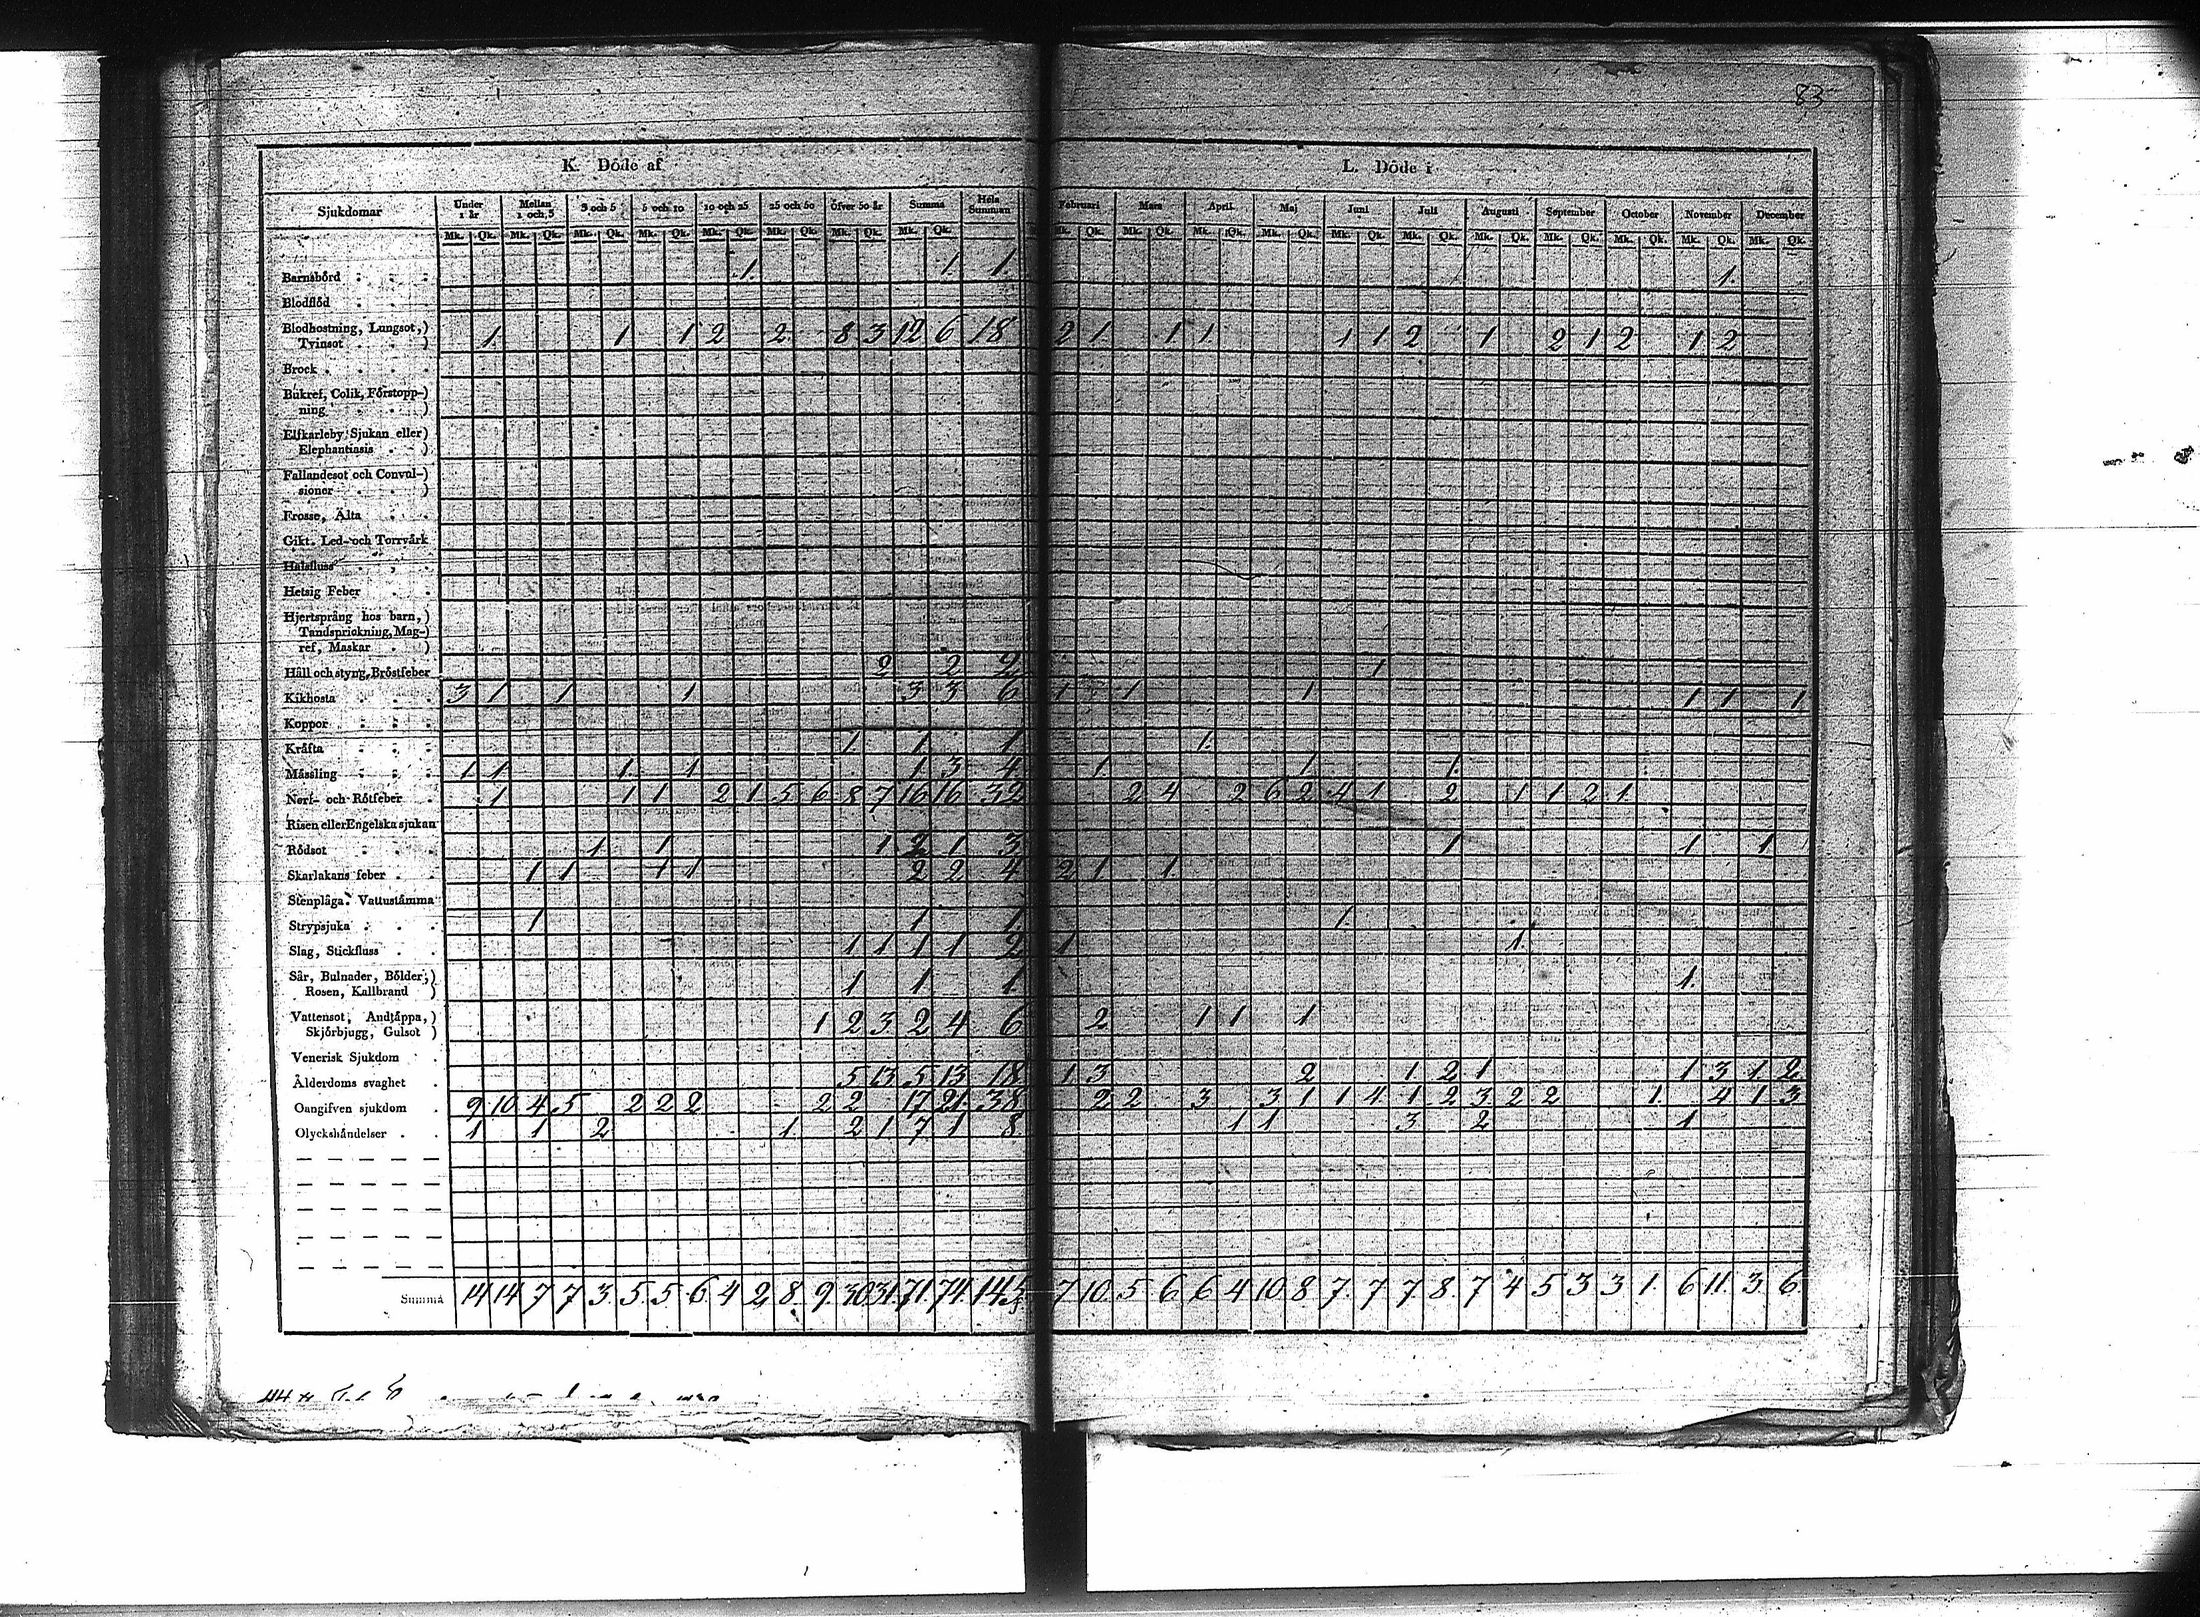 83
K. Döde af
L. Döde i
Sjukdomar Under 1 år Mellan 1 och 3 3 och 5 5 och 10 10 och 25 25 och 50 Öfver 50 år Summa Hela Summan Februari Mars April Maj Juni Juli Augusti September October November December
Mk. Qk. Mk. Qk. Mk. Qk. Mk. Qk. Mk. Qk. Mk. Qk. Mk. Qk. Mk. Qk. Mk. Qk. Mk. Qk. Mk. Qk. Mk. Qk. Mk. Qk. Mk. Qk. Mk. Qk. Mk. Qk. Mk. Qk. Mk. Qk. Mk. Qk.
Barnsbörd 1 1 1 1
Blodflöd
Blodhostning, Lungsot,)
Tvinsot ) 1 1 1 2 2 8 3 12 6 18 2 1 1 1 1 1 2 1 2 1 2 1 2
Brock
Bukref, Colik, Förstopp-)
ning )
Elfkarleby Sjukan eller)
Elephantiasis )
Fallandesot och Convul-)
sioner )
Frosse, Älta
Gikt. Led- och Torrvärk
Halsfluss
Hetsig Feber
Hjertsprång hos barn,)
Tandsprickning, Mag-)
ref, Maskar )
Håll och styng, Bröstfeber 2 2 2 1
Kikhosta 3 1 1 1 3 3 6 1 1 1 1 1 1
Koppor
Kräfta 1 1 1 1
Mässling 1 1 1 1 1 3 4 1 1 1
Nerf- och Rötfeber 1 1 1 2 1 5 6 8 7 16 16 32 2 4 2 6 2 4 1 2 1 1 2 1
Risen eller Engelska sjukan
Rödsot 1 1 1 2 1 3 1 1 1
Skarlakans feber 1 1 1 1 2 2 4 2 1 1
Stenplåga. Vattustämma
Strypsjuka 1 1 1 1
Slag, Stickfluss 1 1 1 1 2 1 1
Sår, Bulnader, Bölder,)
Rosen, Kallbrand ) 1 1 1 1
Vattensot, Andtäppa,)
Skjörbjugg, Gulsot ) 1 2 3 2 4 6 2 1 1 1
Venerisk Sjukdom
Ålderdoms svaghet 5 13 5 13 18 1 3 2 1 2 1 1 3 1 2
Oangifven sjukdom 9 10 4 5 2 2 2 2 2 17 21 38 2 2 3 3 1 1 4 1 2 3 2 2 1 4 1 3
Olyckshändelser 1 1 2 1 2 1 7 1 8 1 1 3 2 1
Summa 14 14 7 7 3 5 5 6 4 2 8 9 30 31 71 74 145 7 10 5 6 6 4 10 8 7 7 7 8 7 4 5 3 3 1 6 11 3 6